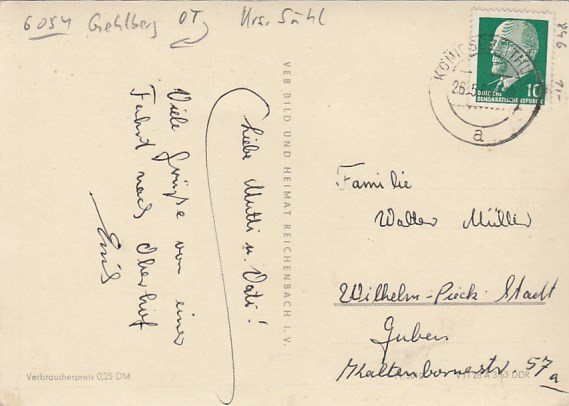 6054 Gehlberg OT
Krs. Suhl
Liebe Mutti u. Vati!
Viele Grüße von einer
Fahrt nach Oberhof
VEB BILD UND HEIMAT REICHENBACH I. V.
10
DEUTSCHE
DEMOKRATISCHE REPUBLIK
26.5
a
Familie
Walter Müller
Wilhelm-Pieck-Stadt
Guben
Kaltenbornerstr. 57a
Verbraucherpreis 0,25 DM
DDR